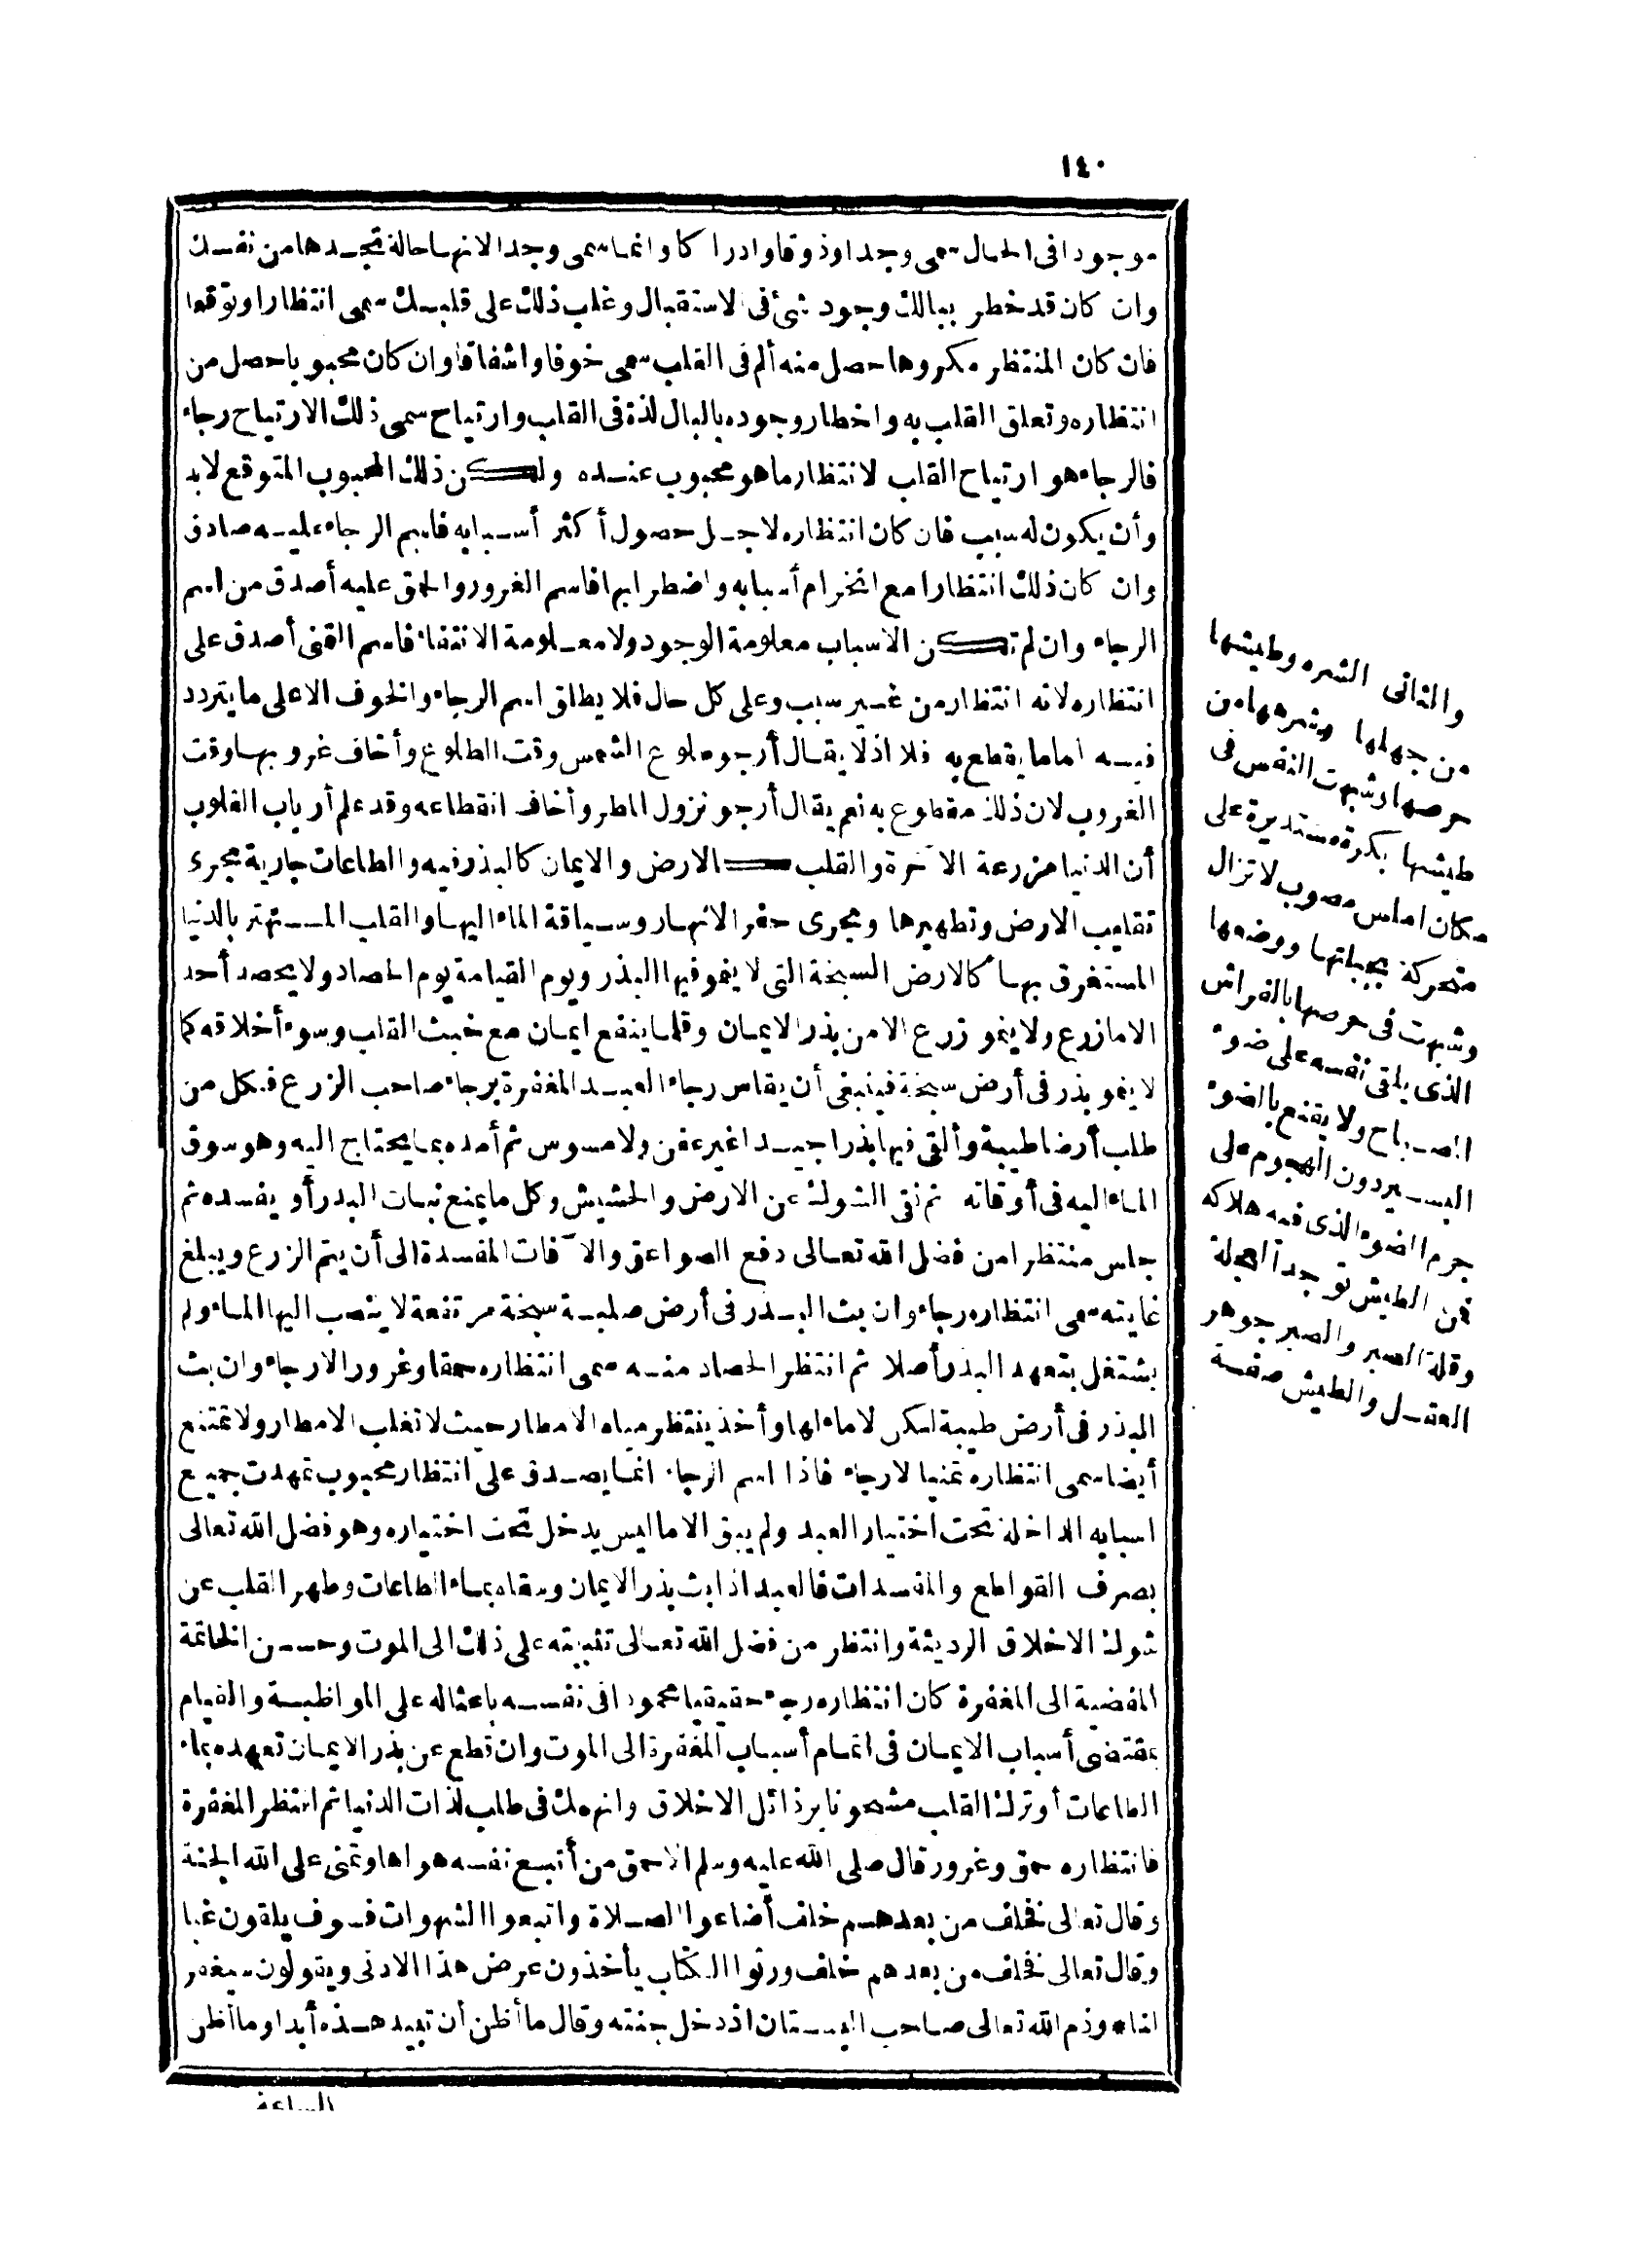 ١٤٠
موجودا فى الحال سمى وجدا وذوقا وادراكا وانما سمى وجدا لانها حالة تجدها من نفسك
وان كان قد خطر ببالك وجود شئ فى الاستقبال وغلب ذلك على قلبك سمى انتظارا وتوقعا
فان كان المنتظر مكروها حصل منه ألم فى القلب سمى خوفا واشفاقا وان كان محبوبا حصل من
انتظاره وتعلق القلب به واخطار وجوده بالبال لذة فى القلب وارتياح سمى ذلك الارتياح رجاء
فالرجاء هو ارتياح القلب لانتظار ما هو محبوب عنده ولكن ذلك المحبوب المتوقع لابد
وأن يكون له سبب فان كان انتظاره لاجل حصول أكثر أسبابه فاسم الرجاء عليه صادق
وان كان ذلك انتظارا مع انخرام أسبابه واضطرابها فاسم الغرور والحمق عليه أصدق من اسم
الرجاء وان لم تكن الاسباب معلومة الوجود ولا معلومة الانتفاء فاسم التمنى أصدق على
انتظاره لانه انتظار من غير سبب وعلى كل حال فلا يطلق اسم الرجاء والخوف الا على ما يتردد
فيه اما ما يقطع به فلا اذ لا يقال أرجو طلوع الشمس وقت الطلوع وأخاف غروبها وقت
الغروب لان ذلك مقطوع به نعم يقال أرجو نزول المطر وأخاف انقطاعه وقد علم أرباب القلوب
أن الدنيا مزرعة الآخرة والقلب كالارض والايمان كالبذر فيه والطاعات جارية مجرى
تقليب الارض وتطهيرها ومجرى حفر الانهار وسياقة الماء اليها والقلب المستهتر بالدنيا
المستغرق بها كالارض السبخة التى لا ينمو فيها البذر ويوم القيامة يوم الحصاد ولا يحصد أحد
الا ما زرع ولا ينمو زرع الا من بذر الايمان وقلما ينفع ايمان مع خبث القلب وسوء أخلاقه كما
لا ينمو بذر فى أرض سبخة فينبغى أن يقاس رجاء العبد المغفرة برجاء صاحب الزرع فكل من
طلب أرضا طيبة وألقى فيها بذرا جيدا غير عفن ولا مسوس ثم أمده بما يحتاج اليه وهو سوق
الماء اليه فى أوقاته ثم نقى الشوك عن الارض والحشيش وكل ما يمنع نبات البدر أو يفسده ثم
جلس منتظرا من فضل الله تعالى دفع الصواعق والآفات المفسدة الى أن يتم الزرع ويبلغ
غايته سمى انتظاره رجاء وان بث البذر فى أرض صلبة سبخة مرتفعة لا ينصب اليها الماء ولم
يشتغل بتعهد البذر أصلا ثم انتظر الحصاد منه سمى انتظاره حمقا وغرورا لا رجاء وان بث
البذر فى أرض طيبة لكن لا ماء لها وأخذ ينتظر مياه الامطار حيث لا تغلب الامطار ولا تمتنع
أيضا سمى انتظاره تمنيا لا رجاء فاذا اسم الرجاء انما يصدق على انتظار محبوب تمهدت جميع
اسبابه الداخلة تحت اختيار العبد ولم يبق الا ما ليس يدخل تحت اختياره وهو فضل الله تعالى
بصرف القواطع والمفسدات فالعبد اذا بث بذر الايمان وسقاه بماء الطاعات وطهر القلب عن
شوك الاخلاق الرديئة وانتظر من فضل الله تعالى تثبيته على ذلك الى الموت وحسن الخاتمة
المفضية الى المغفرة كان انتظاره رجاء حقيقيا محمودا فى نفسه باعثا له على المواظبة والقيام
بمقتضى أسباب الايمان فى اتمام أسباب المغفرة الى الموت وان قطع عن بذر الايمان تعهده بماء
الطاعات أو ترك القلب مشحونا برذائل الاخلاق وانهمك فى طلب لذات الدنيا ثم انتظر المغفرة
فانتظاره حمق وغرور قال صلى الله عليه وسلم الاحمق من أتبع نفسه هواها وتمنى على الله الجنة
وقال تعالى فخلف من بعدهم خلف أضاعوا الصلاة واتبعوا الشهوات فسوف يلقون غيا
وقال تعالى فخلف من بعدهم خلف ورثوا الكتاب يأخذون عرض هذا الادنى ويقولون سيغفر
لنا وذم الله تعالى صاحب البستان اذ دخل جنته وقال ما أظن أن تبيد هذه أبدا وما أظن
الساعة
والثانى الشره وطيشها
من جهلها وشرهها من
حرصها وشبهت النفس فى
طيشها بكرة مستديرة على
مكان املس مصوب لا تزال
متحركة بجبلتها ووضعها
وشبهت فى حرصها بالفراش
الذى يلقى نفسه على ضوء
المصباح ولا يقنع بالضوء
اليسير دون الهجوم على
جرم الضوء الذى فيه هلاكه
فمن الطيش توجد العجلة
وقلة الصبر والصبر جوهر
العقل والطيش صفة